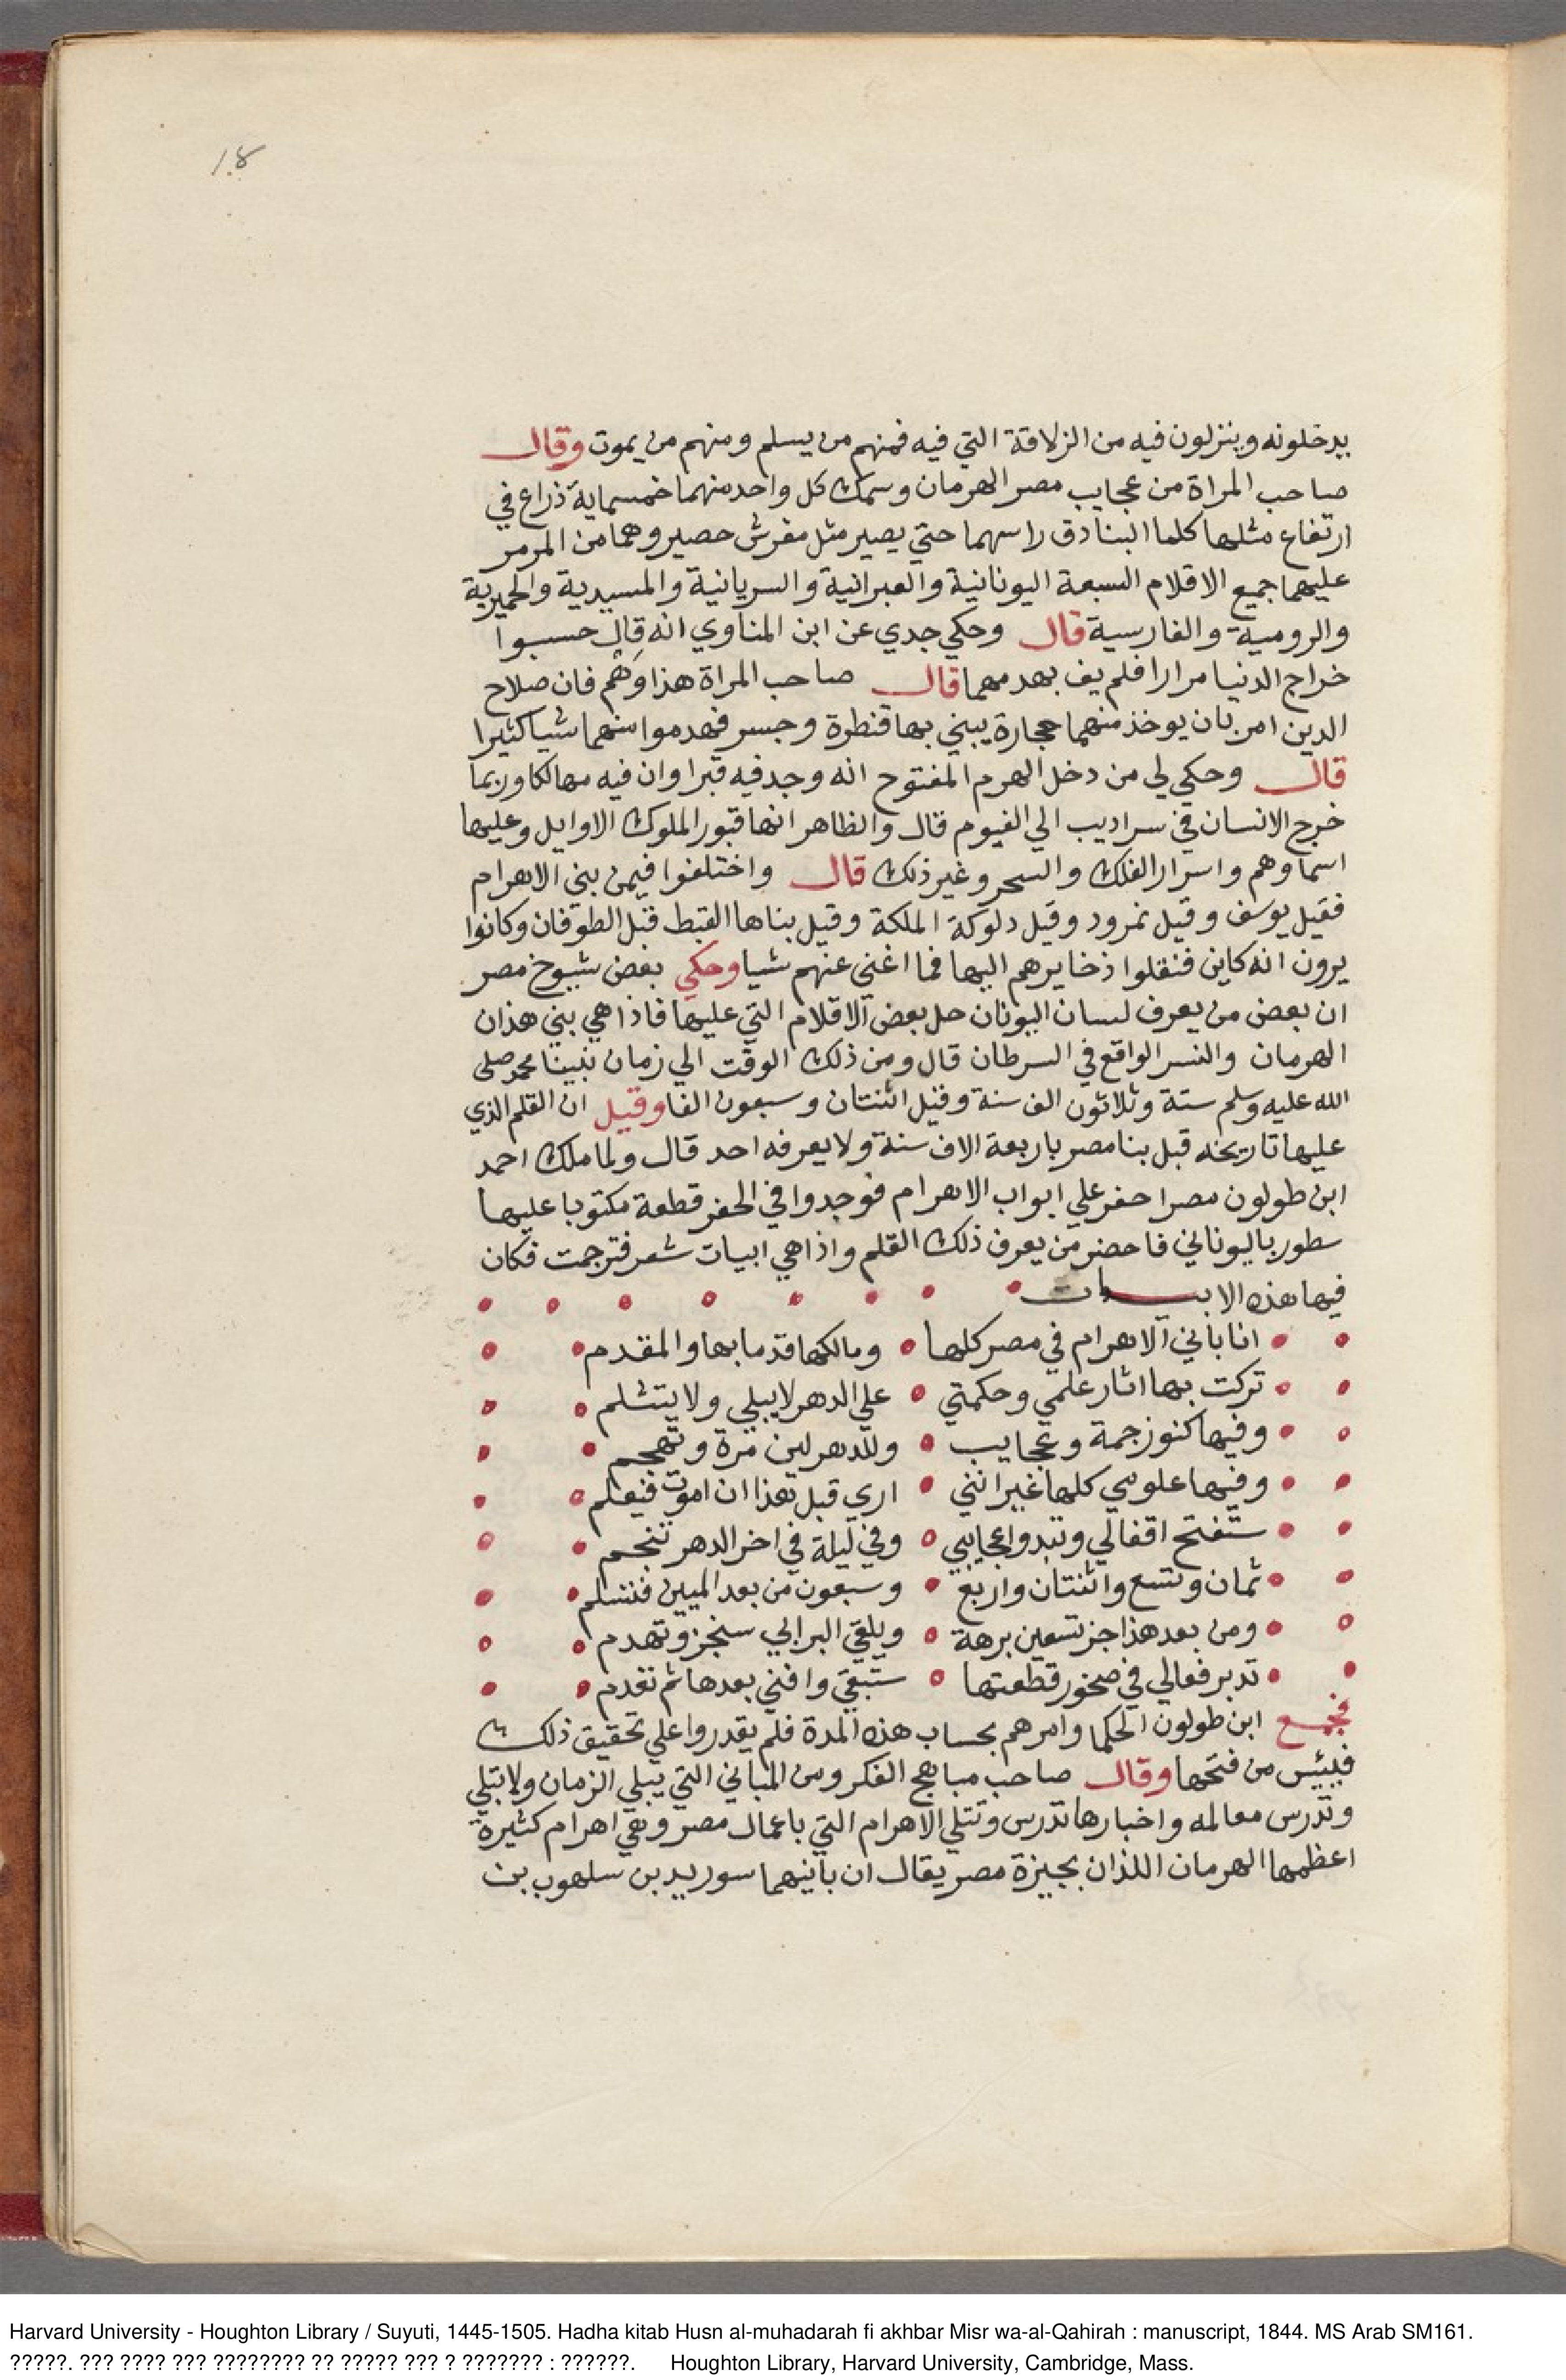 18
يدخلونه وينزلون فيه من الزلاقة التي فيه فمنهم من يسلم ومنهم من يموت وقال
صاحب المراة من عجايب مصر الهرمان وسمك كل واحد منهما خمسماية ذراع في
ارتفاع مثلها كلما البنادق راسهما حتي يصير مثل مفرش حصير وهما من المرمر
عليهما جميع الاقلام السبعة اليونانية والعبرانية والسريانية والمسيدية والحميرية
والرومية والفارسية قال وحكي جدي عن ابن المناوي انه قال حسبوا
خراج الدنيا مرارا فلم يف بهدمهما قال صاحب المراة هذا وَهْم فان صلاح
الدين امر بان يوخذ منهما حجارة يبني بها قنطرة وجسر فهدموا منهما شيا كثيرا
قال وحكي لي من دخل الهرم المفتوح انه وجد فيه قبرا وان فيه مهالكا وربما
خرج الانسان في سراديب الي الفيوم قال والظاهر انها قبور الملوك الاوايل وعليها
اسماوهم واسرار الفلك والسحر وغير ذلك قال واختلفوا فيمن بني الاهرام
فقيل يوسف وقيل نمرود وقيل دلوكة الملكة وقيل بناها القبط قبل الطوفان وكانوا
يرون انه كاين فنقلوا ذخايرهم اليها فما اغني عنهم شيا وحكي بعض شيوخ مصر
ان بعض من يعرف لسان اليونان حل بعض الاقلام التي عليها فاذا هي بني هذان
الهرمان والنسر الواقع في السرطان قال ومن ذلك الوقت الي زمان نبينا محمد صلى
الله عليه وسلم ستة وثلاثون الف سنة وقيل اثنتان وسبعون الفا وقيل ان القلم الذي
عليها تاريخه قبل بنا مصر باربعة الاف سنة ولا يعرفه احد قال ولما ملك احمد
ابن طولون مصرا حفر علي ابواب الاهرام فوجدوا في الحفر قطعة مكتوبا عليها
سطور باليوناني فاحضر من يعرف ذلك القلم واذا هي ابيات شعر فترجمت فكان
فيها هذه الابيات
انا باني الاهرام في مصر كلها ومالكها قدما بها والمقدم
تركت بها اثار علمي وحكمتي علي الدهر لا يبلي ولا يتثلم
وفيها كنوز جمة وعجايب وللدهر لين مرة وتهجم
وفيها علومي كلها غير انني اري قبل هذا ان اموت فيعلم
ستفتح اقفالي وتبدوا عجايبي وفي ليلة في اخر الدهر تنجم
ثمان وتسع واثنتان واربع وسبعون من بعد الميين فتسلم
ومن بعد هذا جز تسعين برهة ويلقي البرابي سنجز وتهدم
تدبر فعالي في صخور قطعتها ستبقي وافني بعدها ثم تعدم
فجمع ابن طولون الحكما وامرهم بحساب هذه المدة فلم يقدروا علي تحقيق ذلك
فييئس من فتحها وقال صاحب مباهج الفكر ومن المباني التي يبلي الزمان ولا تبلي
وتدرس معالمه واخبارها تدرس وتتلي الاهرام التي باعمال مصر وهي اهرام كثيرة
اعظمها الهرمان اللذان بجيزة مصر يقال ان بانيهما سوريد بن سلهوب بن
Harvard University - Houghton Library / Suyuti, 1445-1505. Hadha kitab Husn al-muhadarah fi akhbar Misr wa-al-Qahirah : manuscript, 1844. MS Arab SM161.
?????. ??? ???? ??? ???????? ?? ????? ??? ? ??????? : ??????. Houghton Library, Harvard University, Cambridge, Mass.